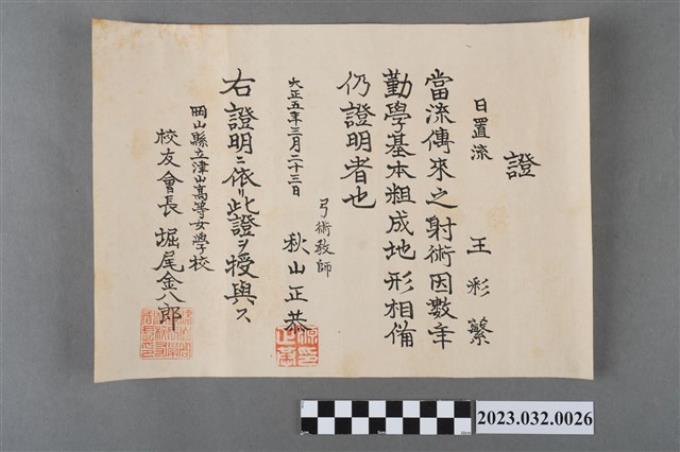 證
日置流 王彩蘩
當流傳來之射術因數年
勤學基本粗成地形相備
仍證明者也
大正五年三月二十三日
弓術教師
秋山正恭
右證明ニ依リ此證ヲ授與ス
岡山縣立津山高等女學校
校友會長 堀尾金八郎
2023.032.0026